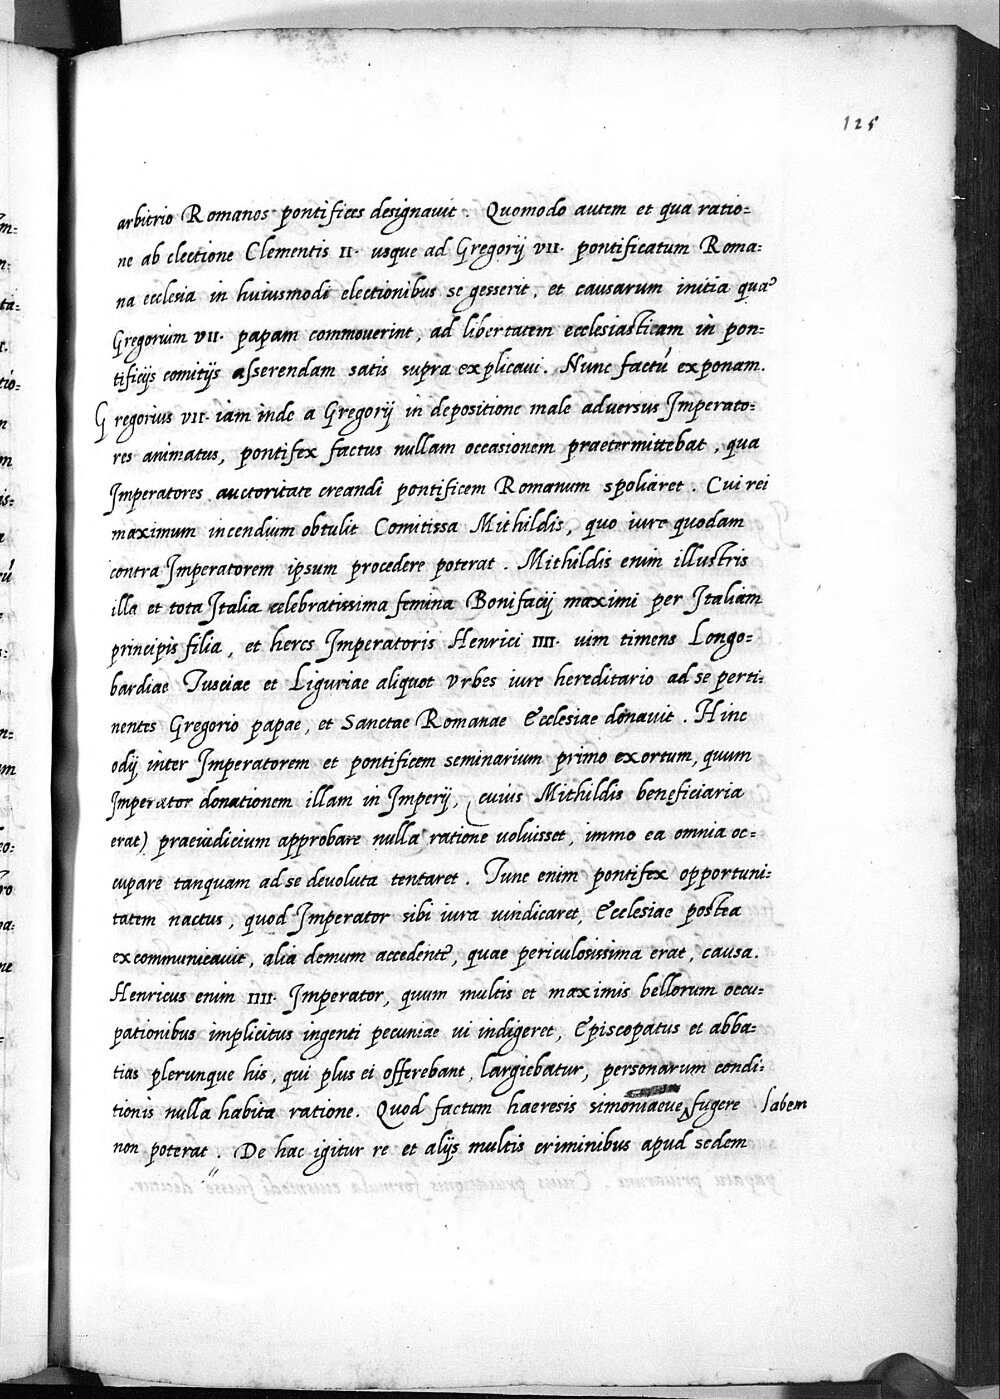 125
arbitrio Romanos pontifices designauit. Quomodo autem et qua ratio=
ne ab electione Clementis II. usque ad Gregorij VII. pontificatum Roma=
na ecclesia in huiusmodi electionibus se gesserit, et causarum initia quae
Gregorium VII. papam commouerint, ad libertatem ecclesiasticam in pon=
tificijs comitijs asserendam satis supra explicaui. Nunc factū exponam.
Gregorius VII. iam inde a Gregorij in depositione male aduersus Imperato=
res animatus, pontifex factus nullam occasionem praetermittebat, qua
Imperatores auctoritate creandi pontificem Romanum spoliaret. Cui rei
maximum incendium obtulit Comitissa Mithildis, quo iure quodam
contra Imperatorem ipsum procedere poterat. Mithildis enim illustris
illa et tota Italia celebratissima femina Bonifacij maximi per Italiam
principis filia, et heres Imperatoris Henrici IIII. uim timens Longo=
bardiae Tusciae et Liguriae aliquot vrbes iure hereditario ad se perti=
nentes Gregorio papae, et Sanctae Romanae Ecclesiae donauit. Hinc
odij inter Imperatorem et pontificem seminarium primo exortum, quum
Imperator donationem illam in Imperij, (cuius Mithildis beneficiaria
erat) praeiudicium approbare nulla ratione uoluisset, immo ea omnia oc=
cupare tanquam ad se deuoluta tentaret. Tunc enim pontifex opportuni=
tatem nactus, quod Imperator sibi iura uindicaret, Ecclesiae postea
excommunicauit, alia demum accedente, quae periculosissima erat, causa.
Henricus enim IIII. Imperator, quum multis et maximis bellorum occu=
pationibus implicitus ingenti pecuniae ui indigeret, Episcopatus et abba=
tias plerunque his, qui plus ei offerebant, largiebatur, personarum condi=
tionis nulla habita ratione. Quod factum haeresis simoniacae fugere labem
non poterat. De hac igitur re et alijs multis criminibus apud sedem